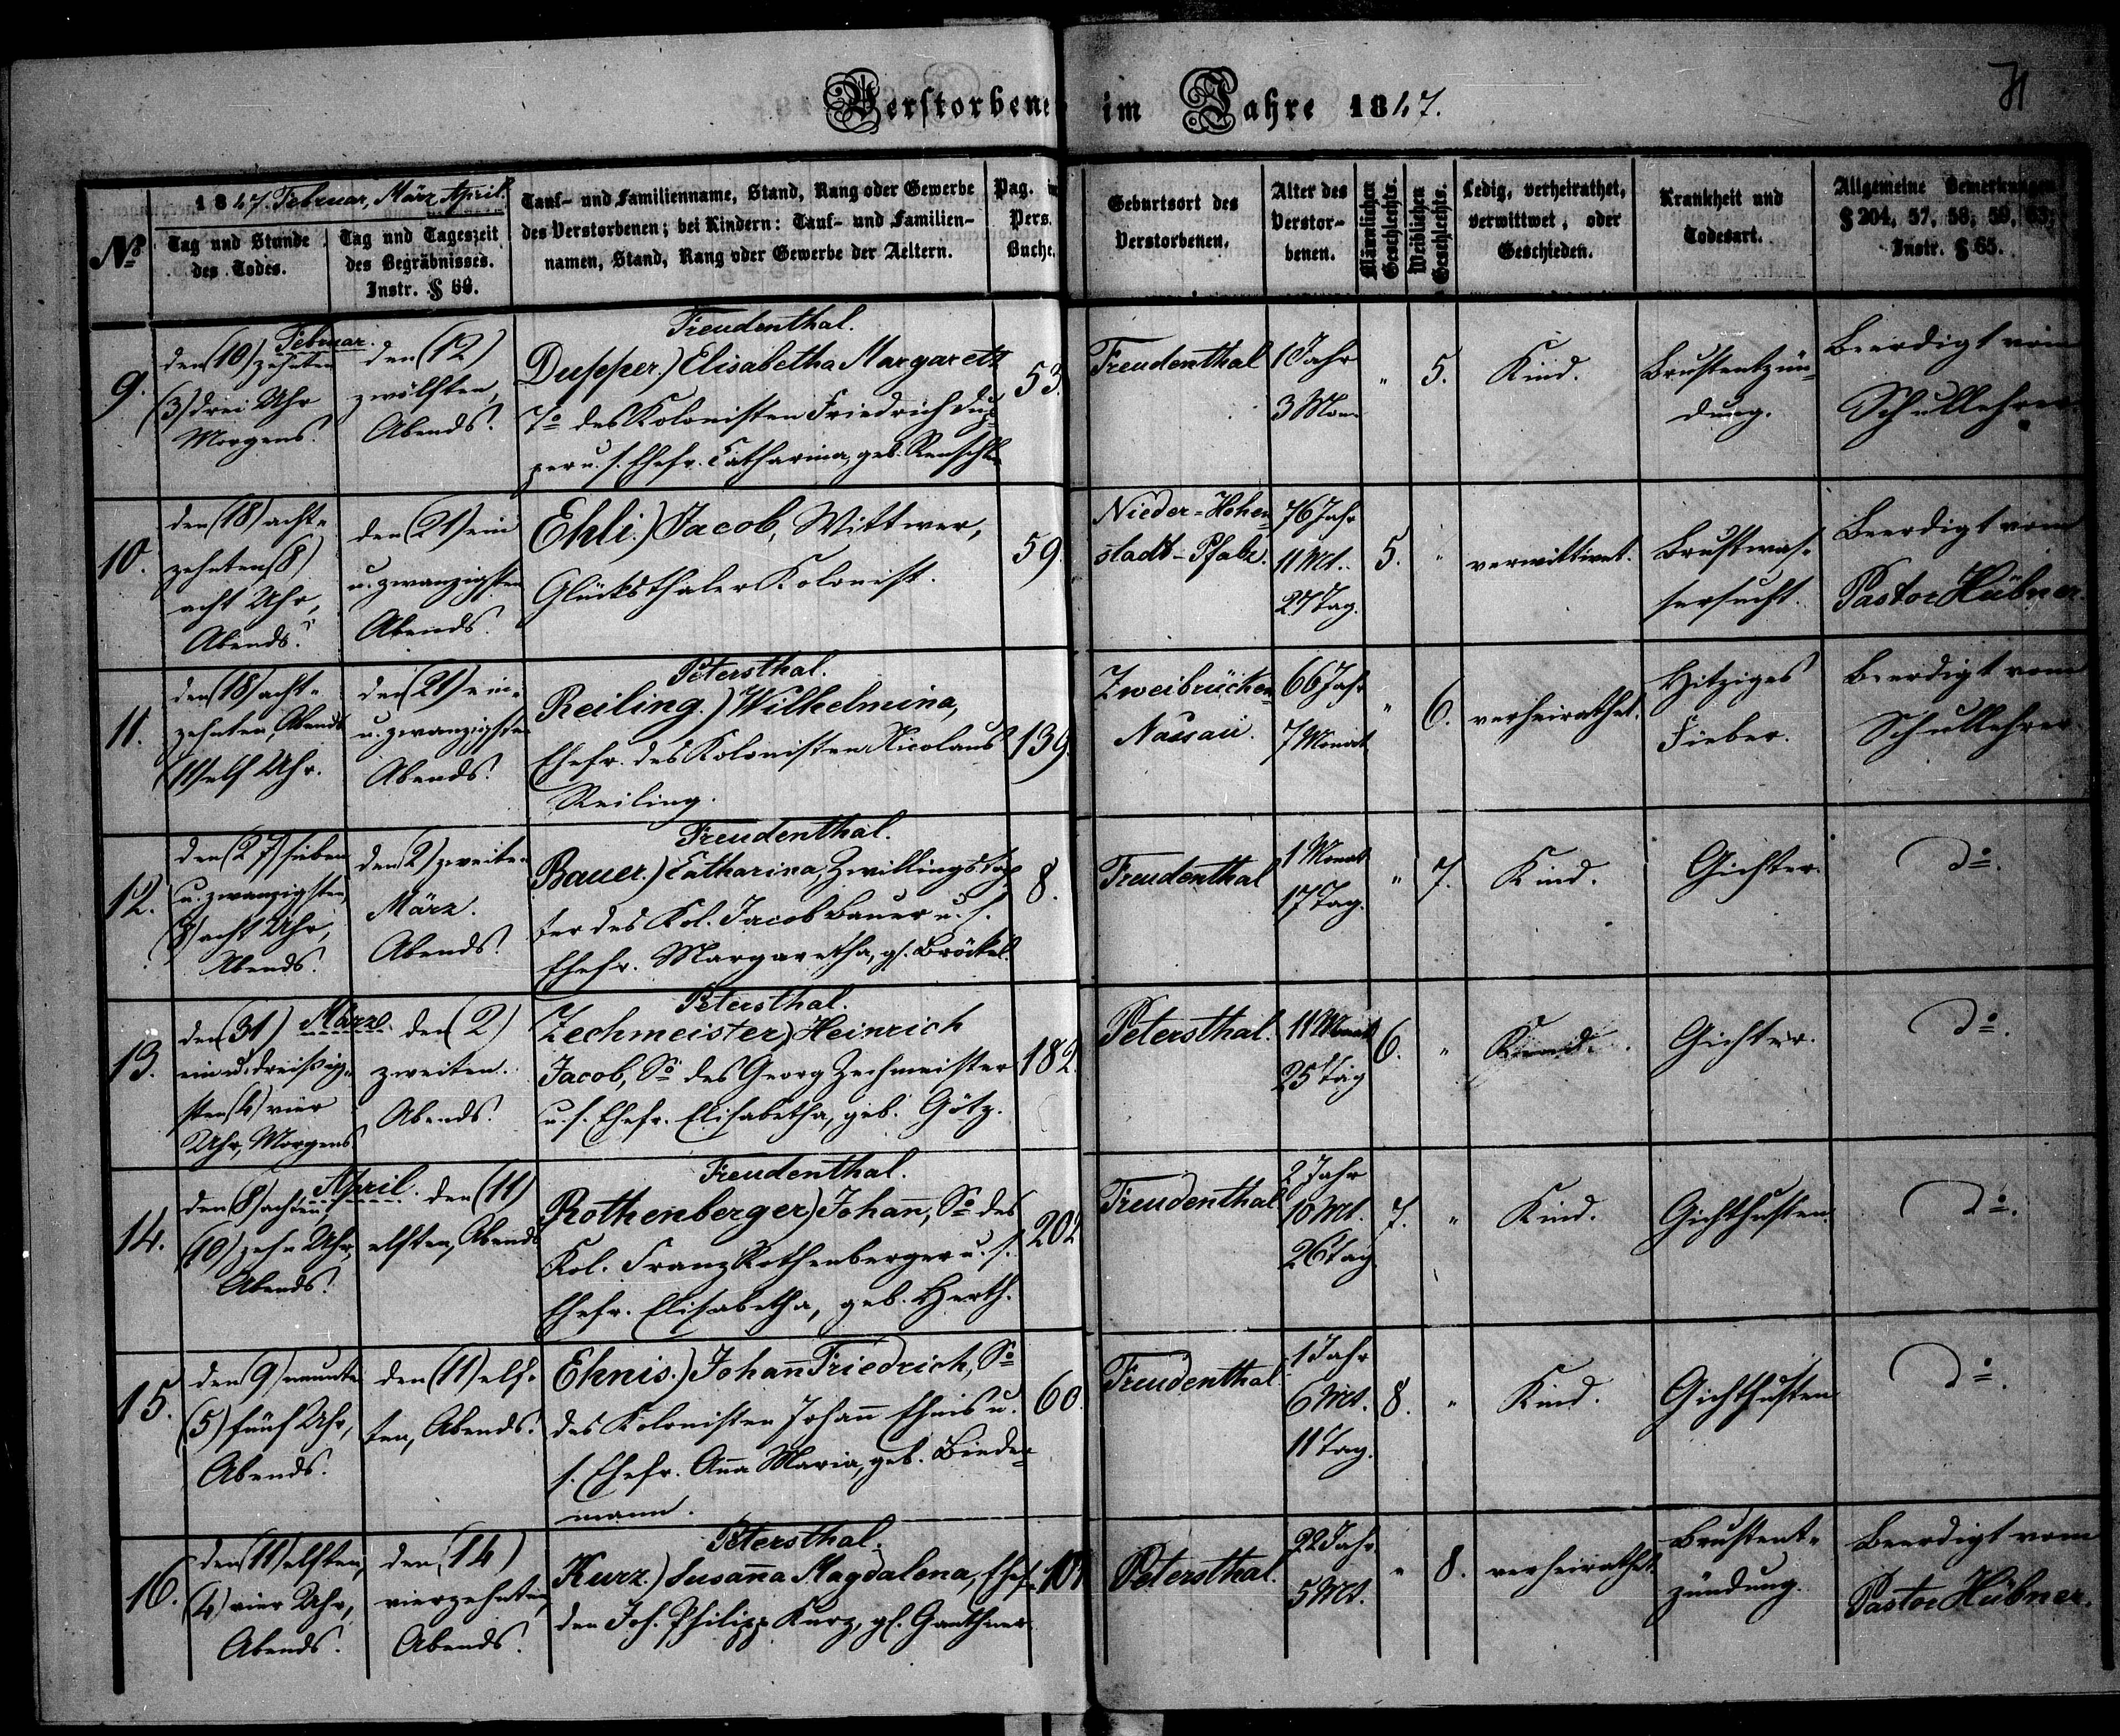 Verstorbene im Jahre 1847.
71
Nº
1847. Februar, März April.
Tag und Stunde
des Todes.
Tag und Tageszeit
des Begräbnisses.
Instr. § 66.
Tauf- und Familienname, Stand, Rang oder Gewerbe
des Verstorbenen; bei Kindern: Tauf- und Familien-
namen, Stand, Rang oder Gewerbe der Aeltern.
Pag. im
Pers.
Buche.
Geburtsort des
Verstorbenen.
Alter des
Verstor-
benen.
Männlichen
Geschlechts.
Weiblichen
Geschlechts.
Ledig, verheirathet,
verwittwet, oder
Geschieden.
Krankheit und
Todesart.
Allgemeine Bemerkungen
§ 204, 57, 58, 59, 63;
Instr. § 65.
9.
Februar.
den (10) zehnten
(3) drei Uhr
Morgens.
den (12)
zwölften,
Abends.
Freudenthal.
Dupper.) Elisabetha Margareth
To des Kolonisten Friedrich Dup-
per u. s. Ehefr. Catharina, geb. Renschler
53.
Freudenthal
1 Jahr
3 Mon.
"
5.
Kind.
Brustentzün-
dung.
Beerdigt vom
Schullehrer.
10.
den (18) acht-
zehnten (8)
acht Uhr,
Abends.
den (21) ein
u. zwanzigsten
Abends.
Ehli.) Jacob, Wittwer,
Glücksthaler Kolonist.
59.
Nieder-Hohen-
stadt-Pfalz.
76 Jahr
11 Mt.
27 Tag.
5.
"
verwittwet.
Brustwas-
sersucht.
Beerdigt vom
Pastor Hübner.
11.
den (18) acht-
zehnten, Abends
(11) elf Uhr.
den (21) ein-
u. zwanzigsten
Abends.
Petersthal.
Reiling.) Wilhelmina,
Ehefr. des Kolonisten Nicolaus
Reiling.
139.
Zweibrücken
Nassau.
66 Jahr
7 Monat
"
6.
verheirathet.
Hitziges
Fieber.
Beerdigt vom
Schullehrer.
12.
den (27) sieben
u. zwanzigsten
(8) acht Uhr,
Abends.
den (2) zweiten
März.
Abends.
Freudenthal.
Bauer.) Catharina, Zwillingstoch-
ter des Kol. Jacob Bauer u. s.
Ehefr. Margaretha, g. Bröckel.
8.
Freudenthal
1 Monat
17 Tag.
"
7.
Kind.
Gichter.
Do.
13.
März.
den (31)
ein u. dreißig-
sten (4) vier
Uhr, Morgens
den (2)
zweiten.
Abends.
Petersthal.
Zechmeister) Heinrich
Jacob, So des Georg Zechmeister
u. s. Ehefr. Elisabetha, geb. Götz.
182.
Petersthal.
11 Monat
25 Tag
6.
"
Kind.
Gichter.
Do.
14.
April.
den (8) achten,
(10) zehn Uhr,
Abends.
den (11)
elften, Abends
Freudenthal.
Rothenberger) Johann, So des
Kol. Franz Rothenberger u. s.
Ehefr. Elisabetha, geb. Herth.
202
Freudenthal
2 Jahr
10 Mt.
26 Tag
7.
"
Kind.
Gichthusten.
Do.
15.
den (9) neunten
(5) fünf Uhr,
Abends.
den (11) elf-
ten, Abends.
Ehnis.) Johann Friedrich, So
des Kolonisten Johann Ehnis u.
s. Ehefr. Anna Maria, geb. Bieder-
mann.
60.
Freudenthal.
1 Jahr
6 Mt.
11 Tag.
8.
"
Kind.
Gichthusten
Do.
16.
den (11) elften,
(4) vier Uhr,
Abends.
den (14)
vierzehnten,
Abends.
Petersthal.
Kurz.) Susanna Magdalena, Ehefr.
des Joh. Philipp Kurz, g. Ganthner
Petersthal.
22 Jahr
5 Mt.
"
8.
verheirathet.
Brustent-
zündung.
Beerdigt vom
Pastor Hübner.